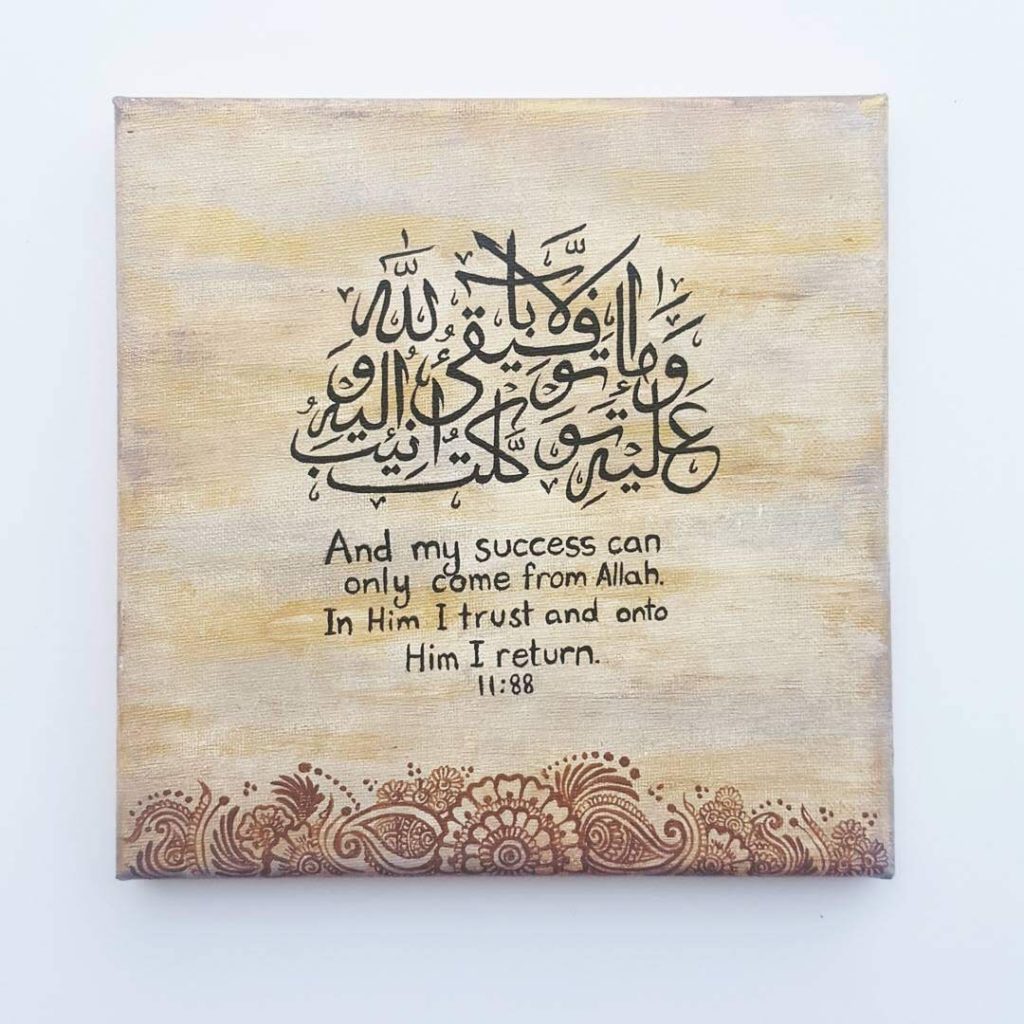 وما توفيقي إلا بالله
عليه توكلت وإليه أنيب
And my success can
only come from Allah.
In Him I trust and onto
Him I return.
11:88